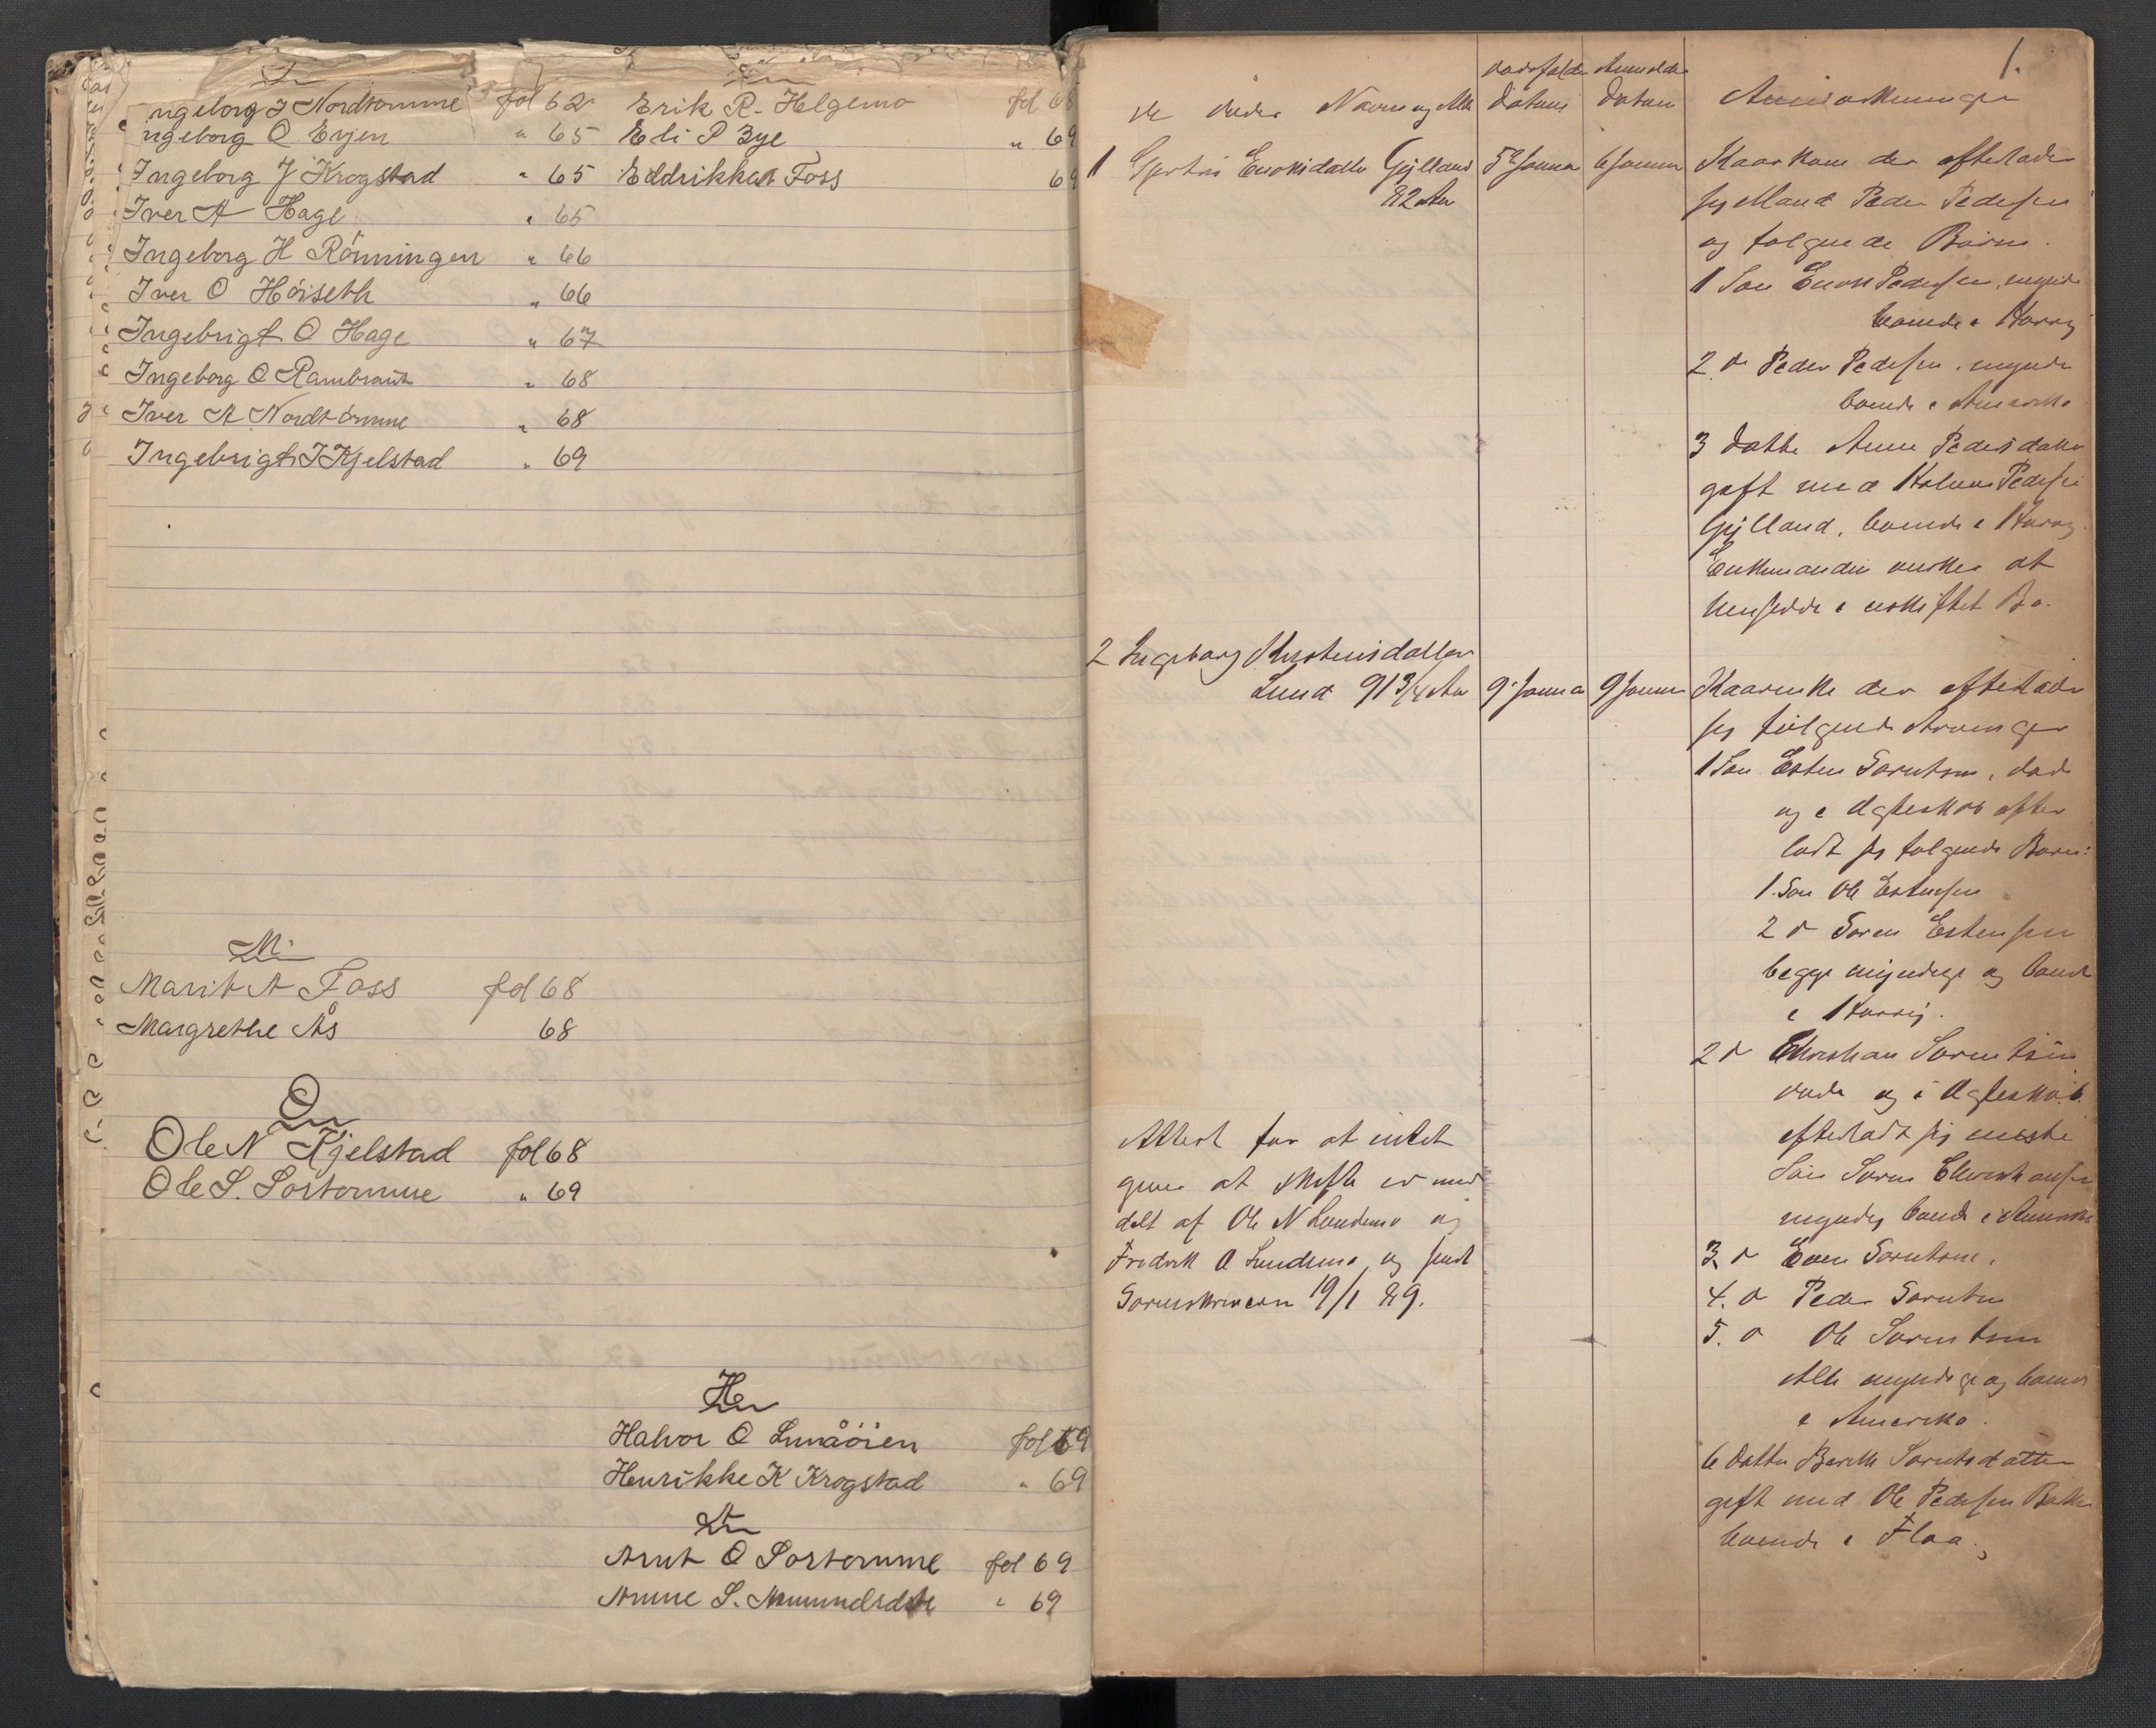 I
Ingeborg J Nordtømme fol 62
Ingeborg O Evjen " 65
Ingeborg J Krogstad " 65
Iver A Hage " 65
Ingeborg H Rönningen " 66
Iver O Höiseth " 66
Ingebrigt O Hage " 67
Ingeborg O Rambraut " 68
Iver A Nordtömme " 68
Ingebrigt J Kjelstad " 69
Erik R. Helgemo fol 68
Eli P Bye " 69
Eldrikka Foss 69
M
Marit A Foss fol 68
Margrethe Ås 68
O
Ole N Kjelstad fol 68
Ole S. Sortømme " 69
H
Halvor O Lunåöien fol 69
Henrikke K Krogstad " 69
A
Arnt O Sortømme fol 69
Anne S. " 69
1.
de dødes Navn og Alder
Dødsfalds Datum
Anmeldes Datum
Anmærkninger
1 Gjertru Enoksdatter Gylland 5 Januar 6 Januar Kaarkone der efterlader
82 Aar
sig Mand Peder Pedersen
og følgende Børn.
1 Søn Enok Pedersen, myndig
boende i Horrig
2. do Peder Pedersen, myndig
boende i Amerika
3 Datter Anne Pedersdatter
gift med Halvor Pedersen
Gylland, boende i Horrig
Enkemanden ønsker at
hensidde i uskiftet Bo.
2 Ingeborg Kirstensdatter
Lund 91 3/4 Aar 9 Januar 9 Januar Kaarenke der efterlader
sig følgende Arvinger
1 Søn Esten Sørentsen, død
og i Ægteskab efter
ladt sig følgende Børn:
1. Søn Ole Estensen
2 do Søren Estensen
begge myndige og boende
i Horrig.
2 do Christian Sørentsen
døde og i Ægteskab
efterladt sig
Søn Søren Christiansen
myndig boende i Amerika
3. do Even Sørentsen,
4. do Peder Sørentsen
5. do Ole Sørentsen
Alle myndige og boende
i Amerika.
6 Datter Berit Sørentsdatter
gift med Ole Pedersen Bakke
boende i Flaa.
Attest for at intet
gives at skifte er med
delt af Ole N Lundemo og
Fredrik O Lundemo, og sendt
Sorenskriveren 19/1 89.